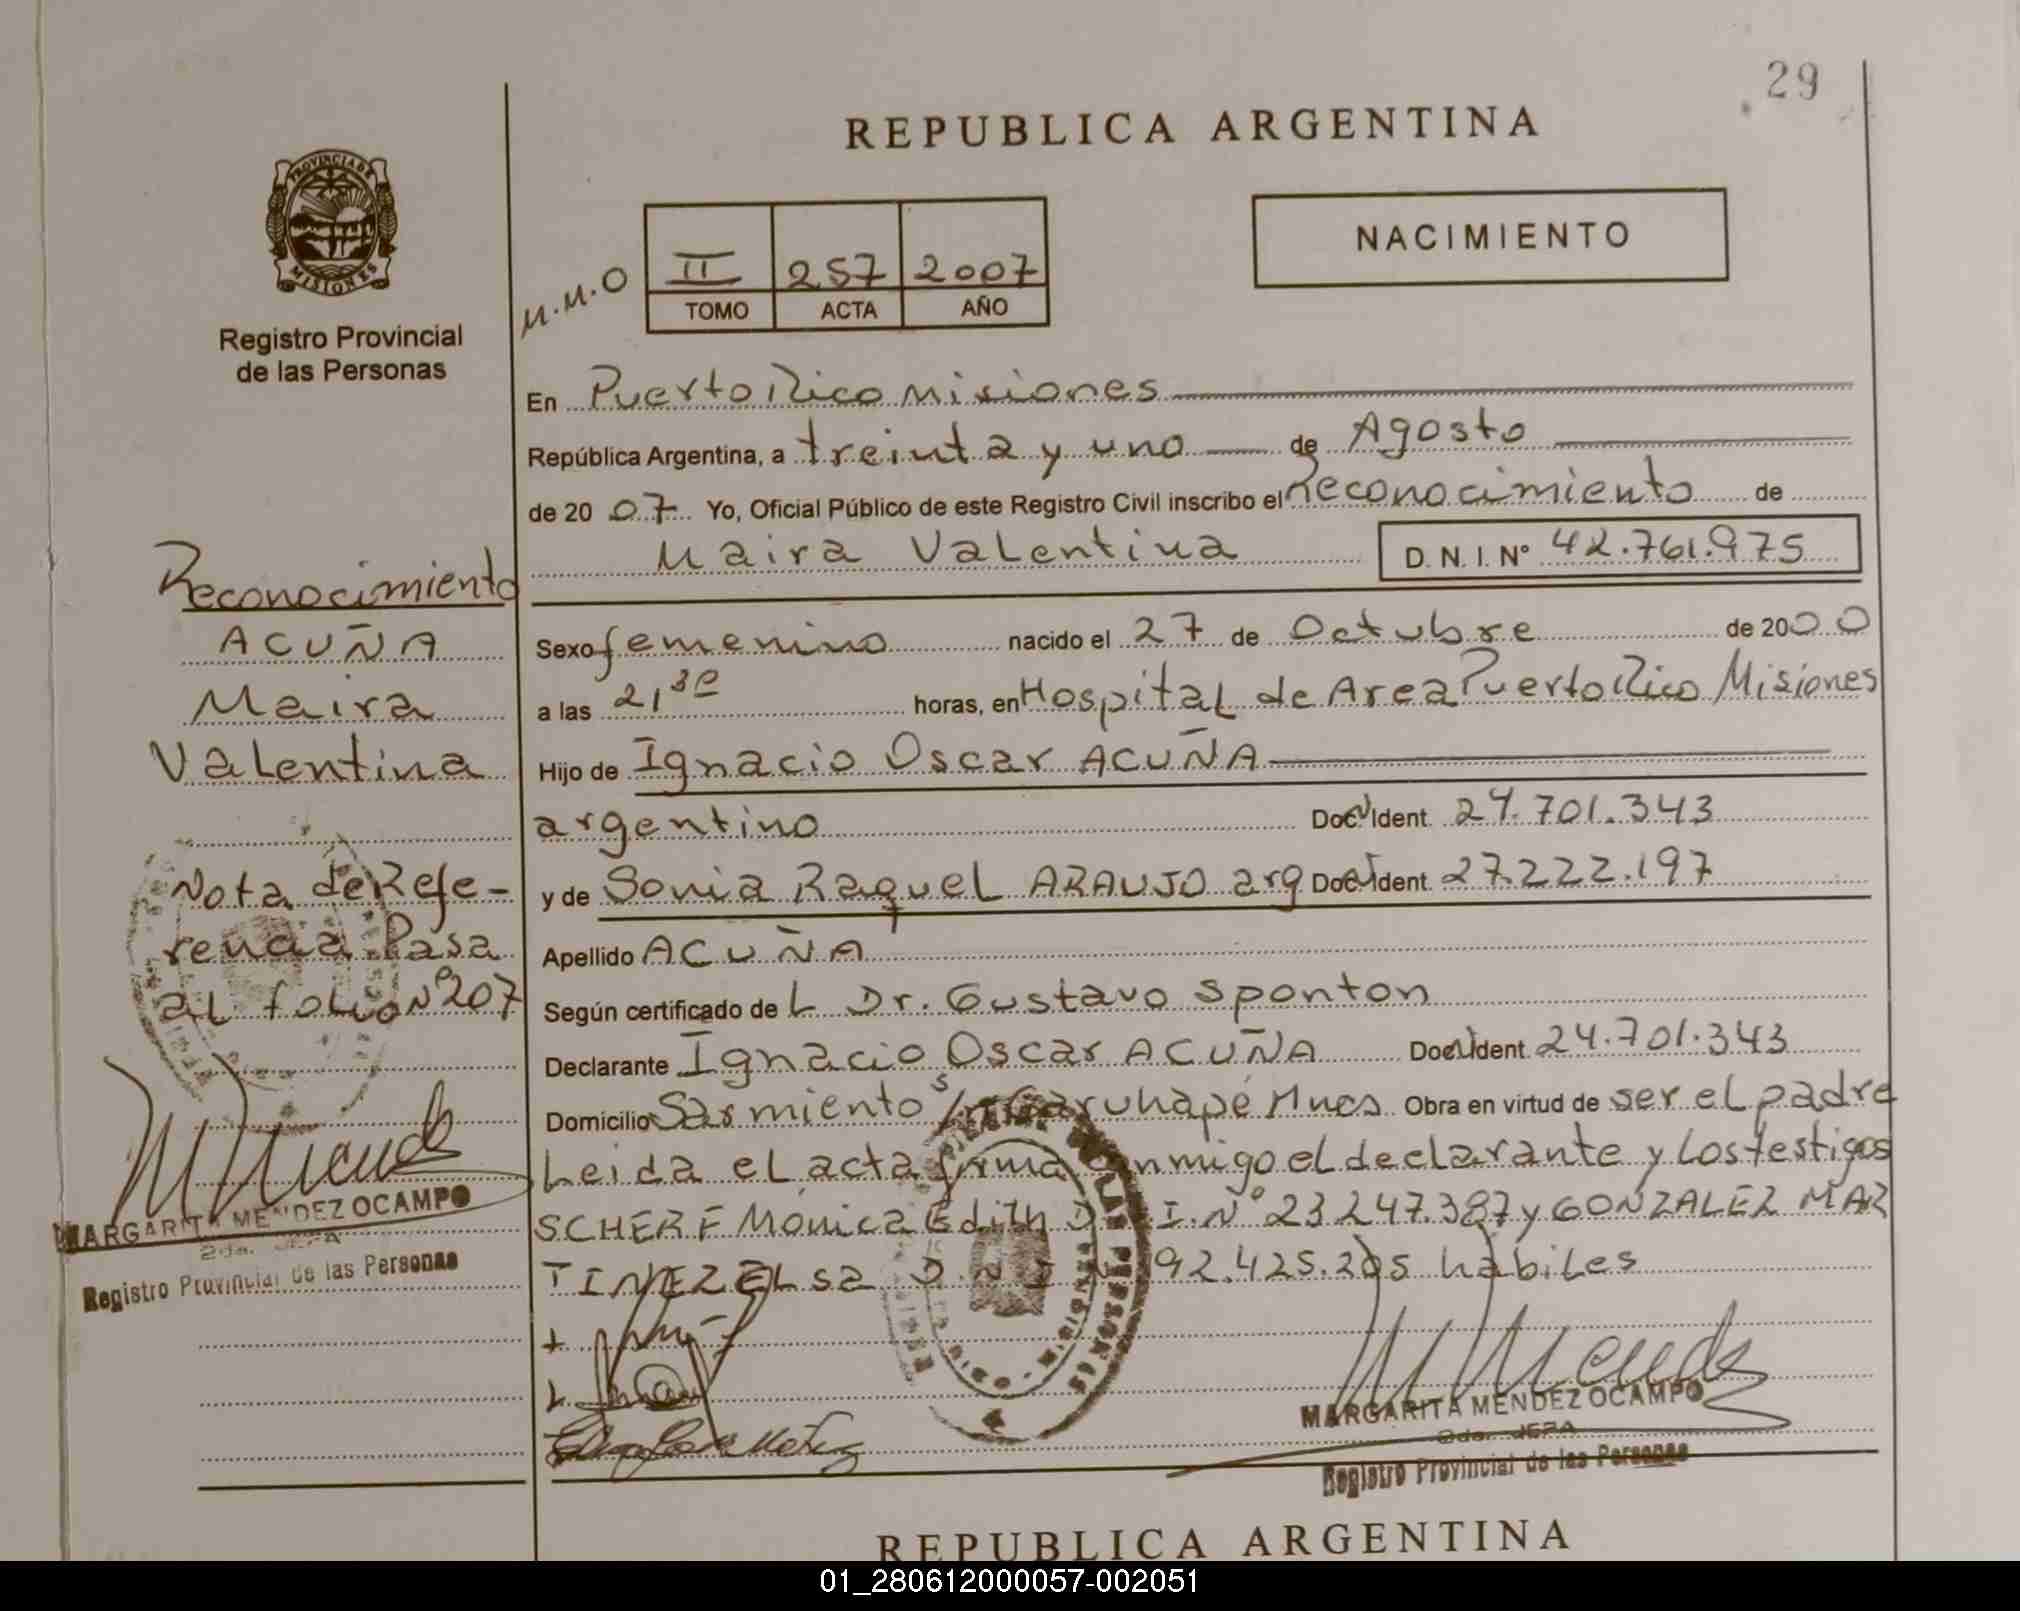 29
REPUBLICA ARGENTINA
PROVINCIA DE
MISIONES
Registro Provincial
de las Personas
NACIMIENTO
M.M.O
II 257 2007
TOMO ACTA AÑO
En Puerto Rico Misiones
República Argentina, a treinta y uno de Agosto
de 2007 Yo, Oficial Público de este Registro Civil inscribo el Reconocimiento de
Maira Valentina D.N.I. Nº 42.761.975
Sexo femenino nacido el 27 de Octubre de 2000
a las 21,30 horas, en Hospital de Area Puerto Rico Misiones
Hijo de Ignacio Oscar ACUÑA
argentino Doc. Ident. 24.701.343
y de Sonia Raquel ARAUJO arg Doc. Ident. 27.222.197
Apellido ACUÑA
Según certificado de L Dr. Gustavo Sponton
Declarante Ignacio Oscar ACUÑA Doc. Ident. 24.701.343
Domicilio Sarmiento s/n Garuhapé Mnes. Obra en virtud de ser el padre
Leida el acta firma conmigo el declarante y los testigos
SCHERF Mónica Edith D.N.I. Nº 23.247.387 y GONZALEZ MAR
TINEZ ELsa D.N.I. Nº 92.425.205 habiles
Reconocimiento
ACUÑA
Maira
Valentina
Nota de Refe-
rencia Pasa
al folio Nº 207
MARGARITA MENDEZ OCAMPO
2da. JEFA
Registro Provincial de las Personas
MARGARITA MENDEZ OCAMPO
2da. JEFA
Registro Provincial de las Personas
REPUBLICA ARGENTINA
01_280612000057-002051